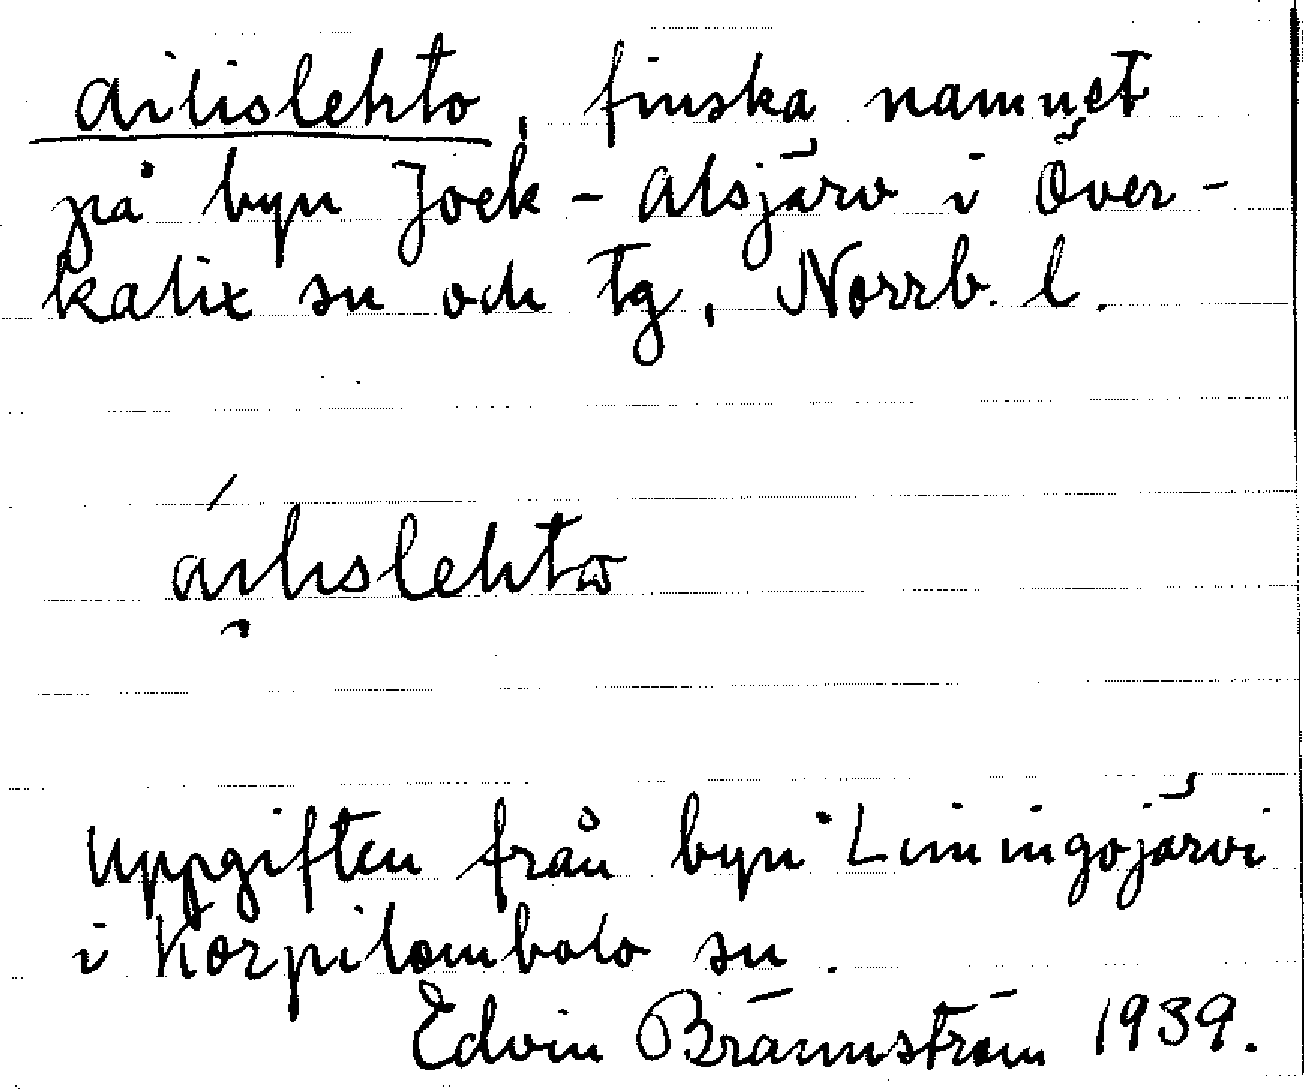 Ailislehto, finska namnet
på byn Jock-Alsjärv i Över-
kalix sn och tg, Norrb. l.
áilislehto
Uppgiften från byn LiminGojärvi
i Korpilombolo sn.
Edvin Brännström 1939.